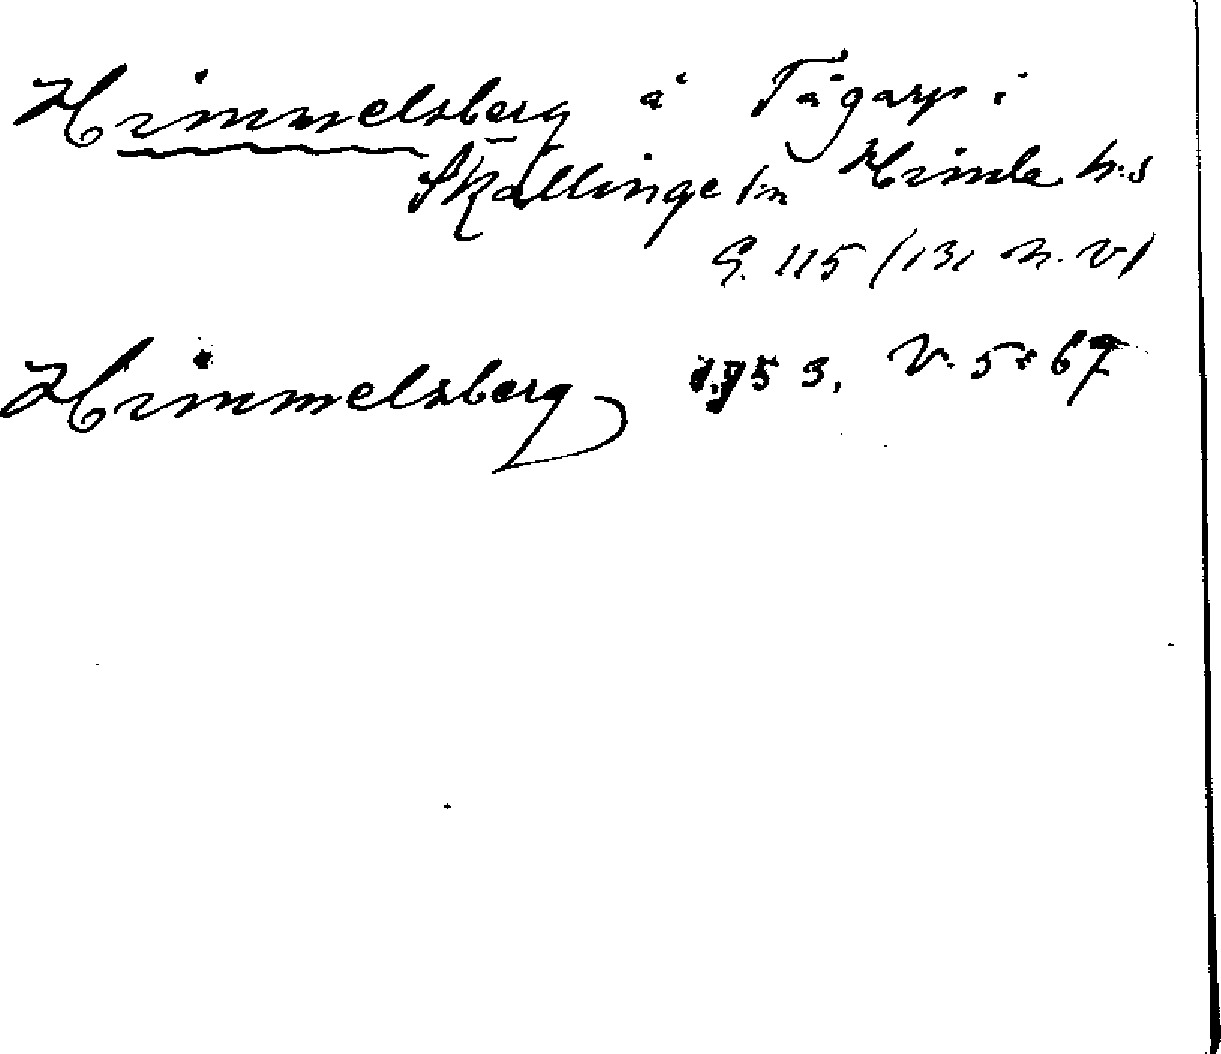 Himmelsberg å Tågarp i
Skällinge sn Himle h:s
G. 115 (131 n. v)
Himmelsberg 1953, V. 5: 67